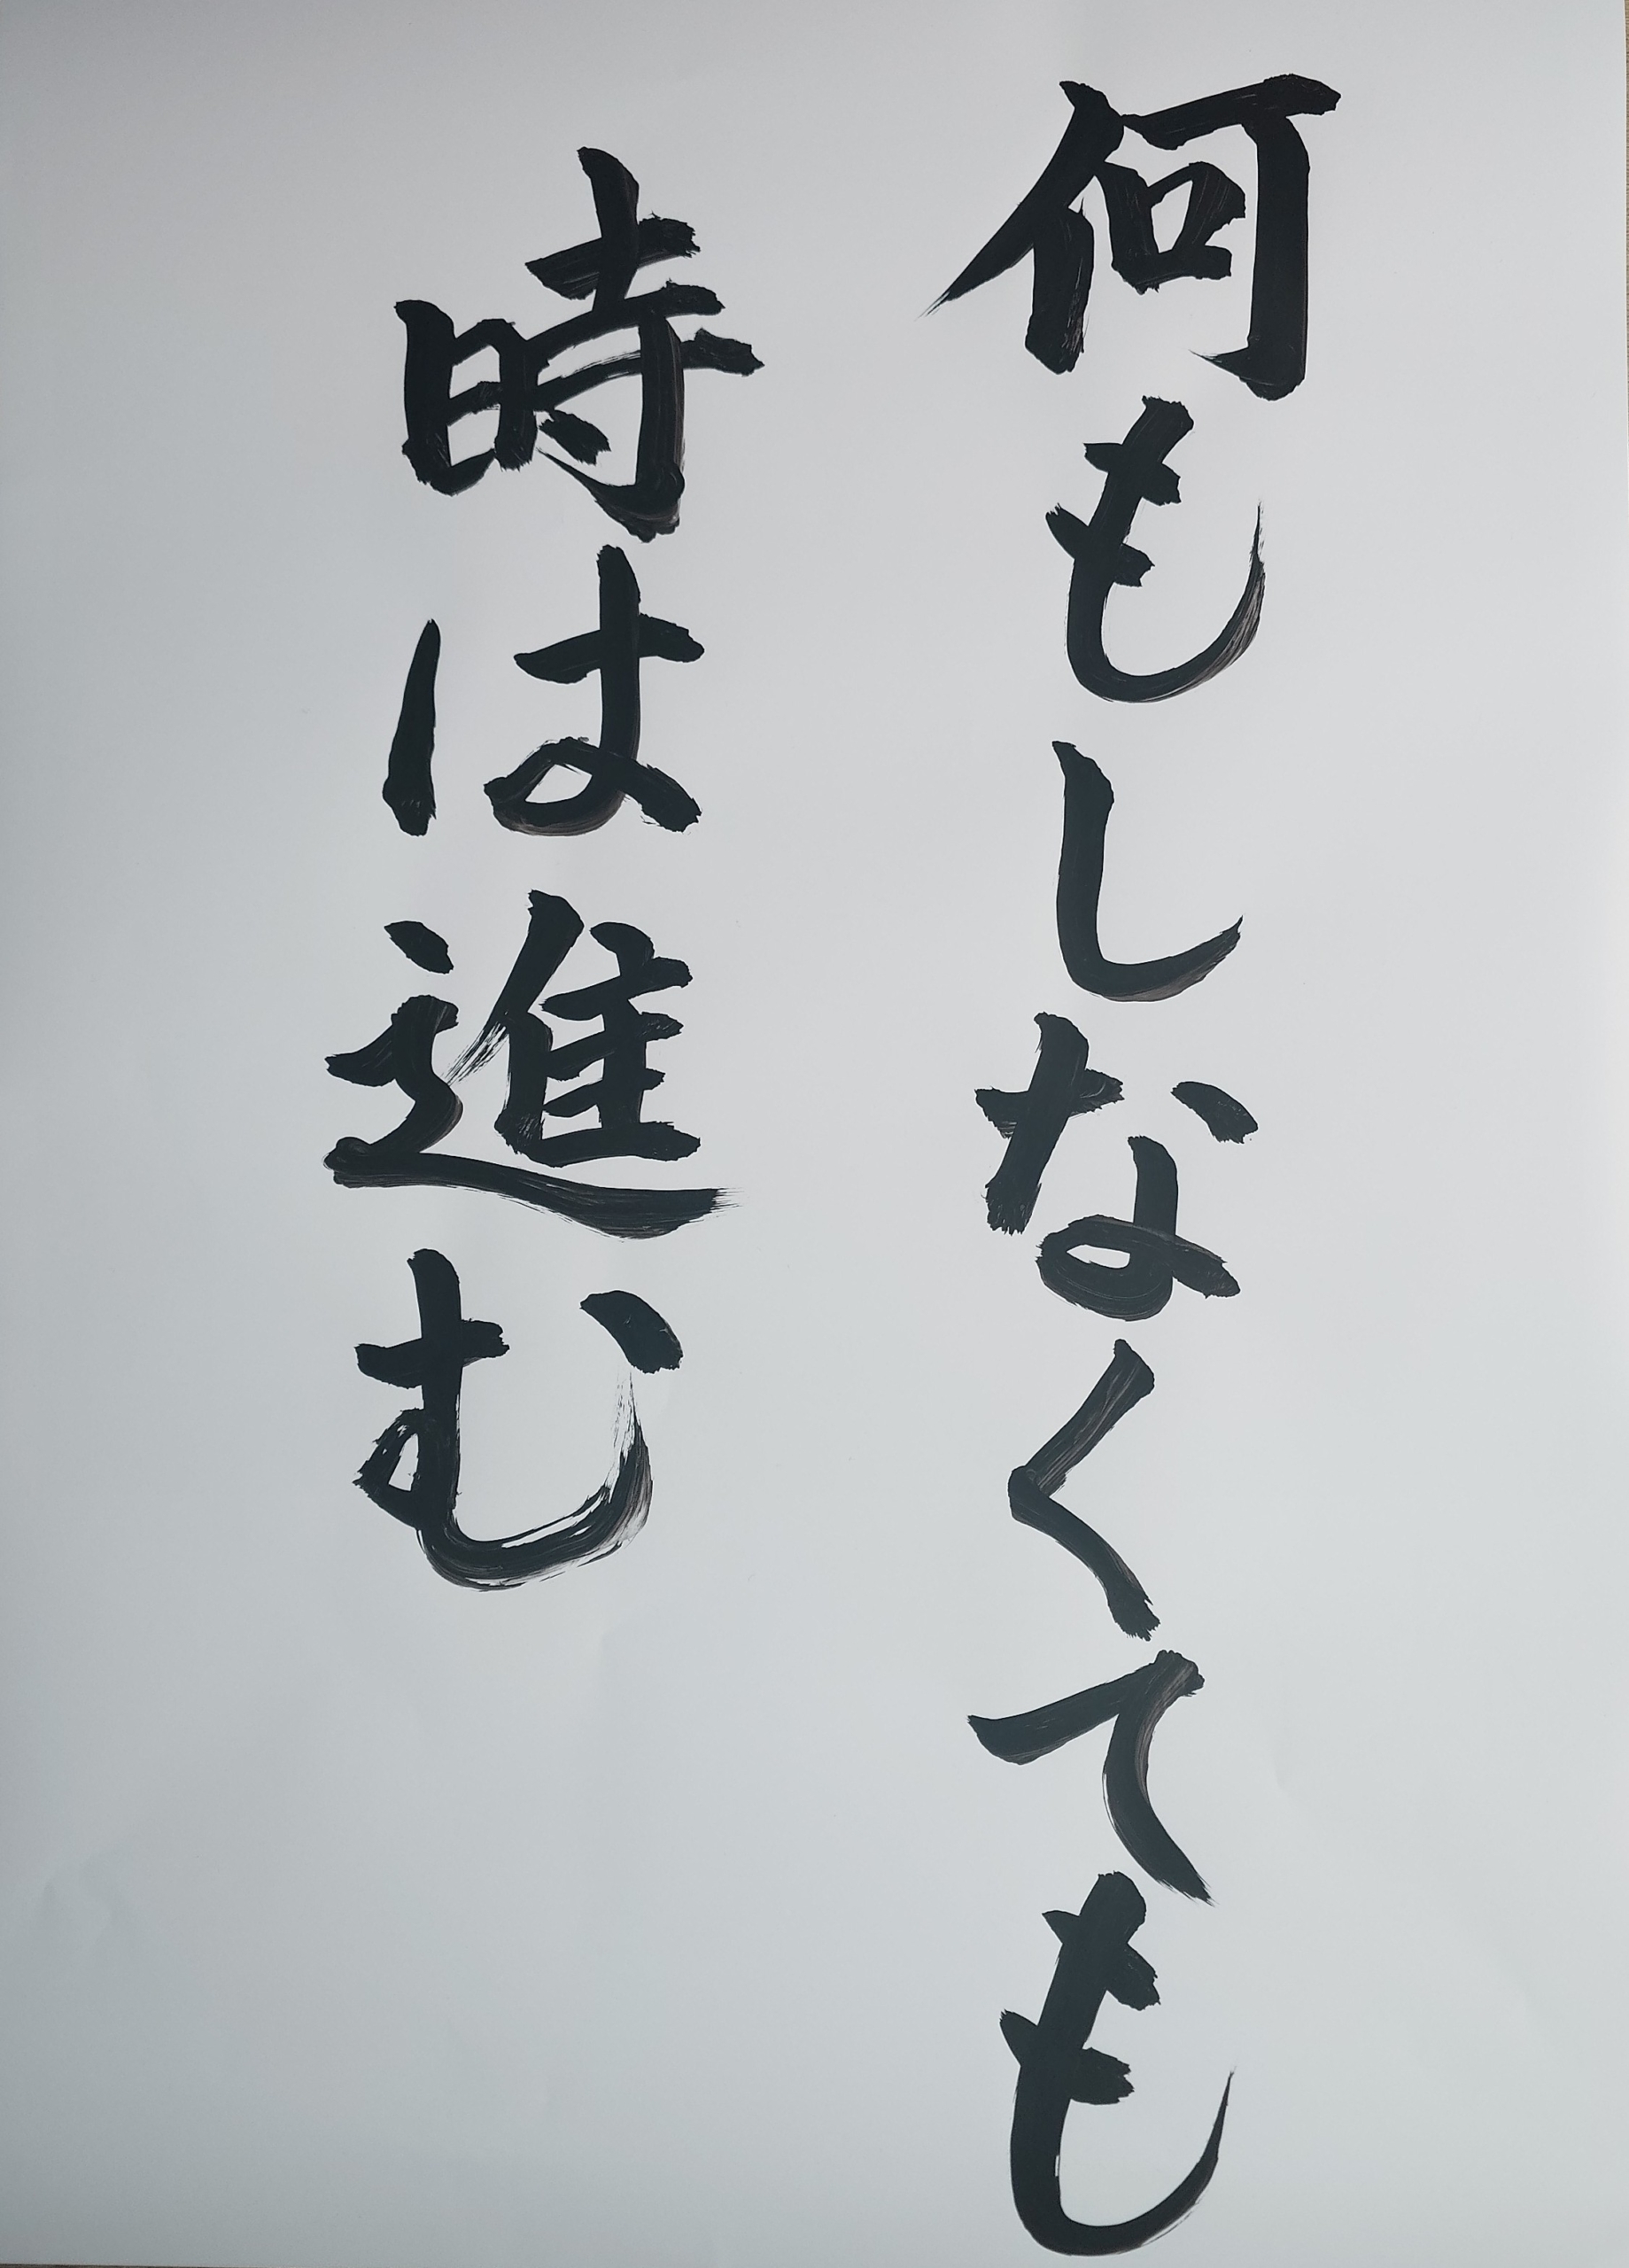 何もしなくても
時は進む